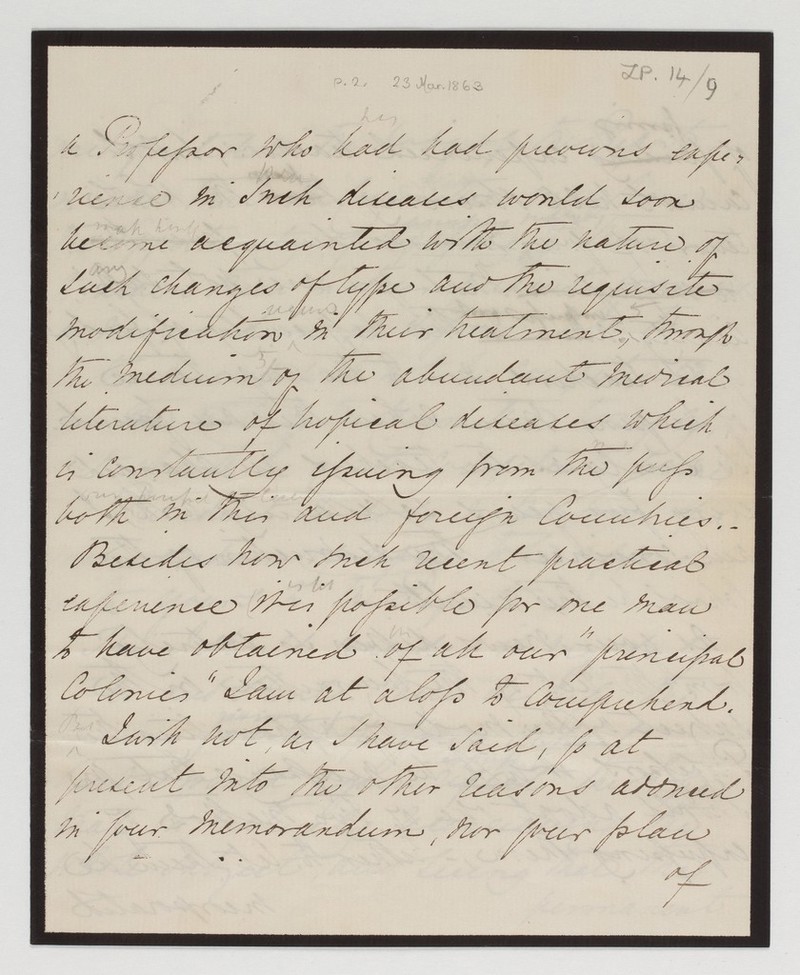 p. 2. 23 Mar. 1863
LP. 14/9
a Professor who had had previous expe-
rience in such diseases would soon
become acquainted with the nature of
such changes of type and the requisite
modification in their treatment, through
the medium of the abundant medical
literature of tropical diseases which
is constantly issuing from the press
both in this and foreign Countries.-
Besides how such recent practical
experience it is possible for one man
to have obtained of all our "principal
Colonies" I am at a loss to comprehend.
I wish not, as I have said, go at
present into the other reasons adduced
in your Memorandum, nor your plan
of